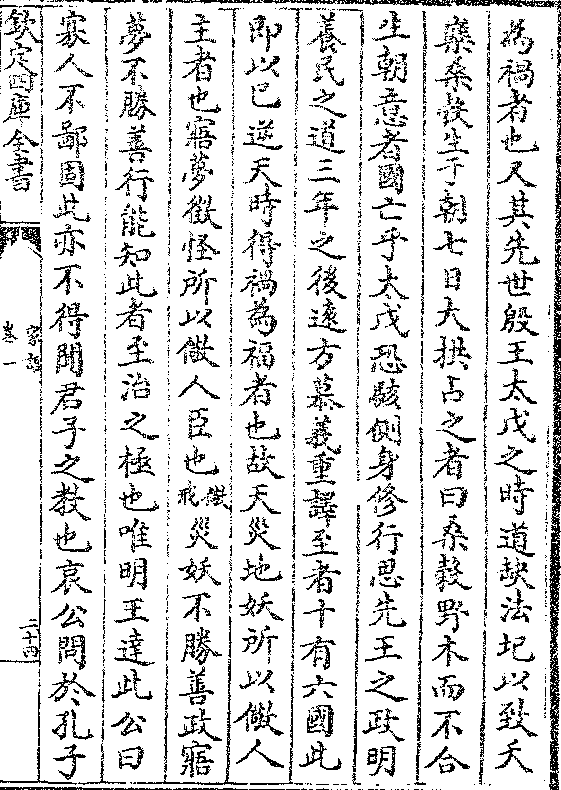 為禍者也又其先世殷王太戊之時道缺法圮以致夭
蘖桑榖生于朝七日大拱占之者曰桑榖野木而不合
生朝意者國亡乎太戊恐駭側身修行思先王之政明
養民之道三年之後逺方慕義重譯至者十有六國此
即以已逆天時得禍為福者也故天災地妖所以儆人
主者也寤夢徴怪所以儆人臣也儆戒災妖不勝善政寤
夢不勝善行能知此者至治之極也唯明王達此公曰
寡人不鄙固此亦不得聞君子之教也哀公問於孔子
欽定四庫全書
家語
卷一
二十四